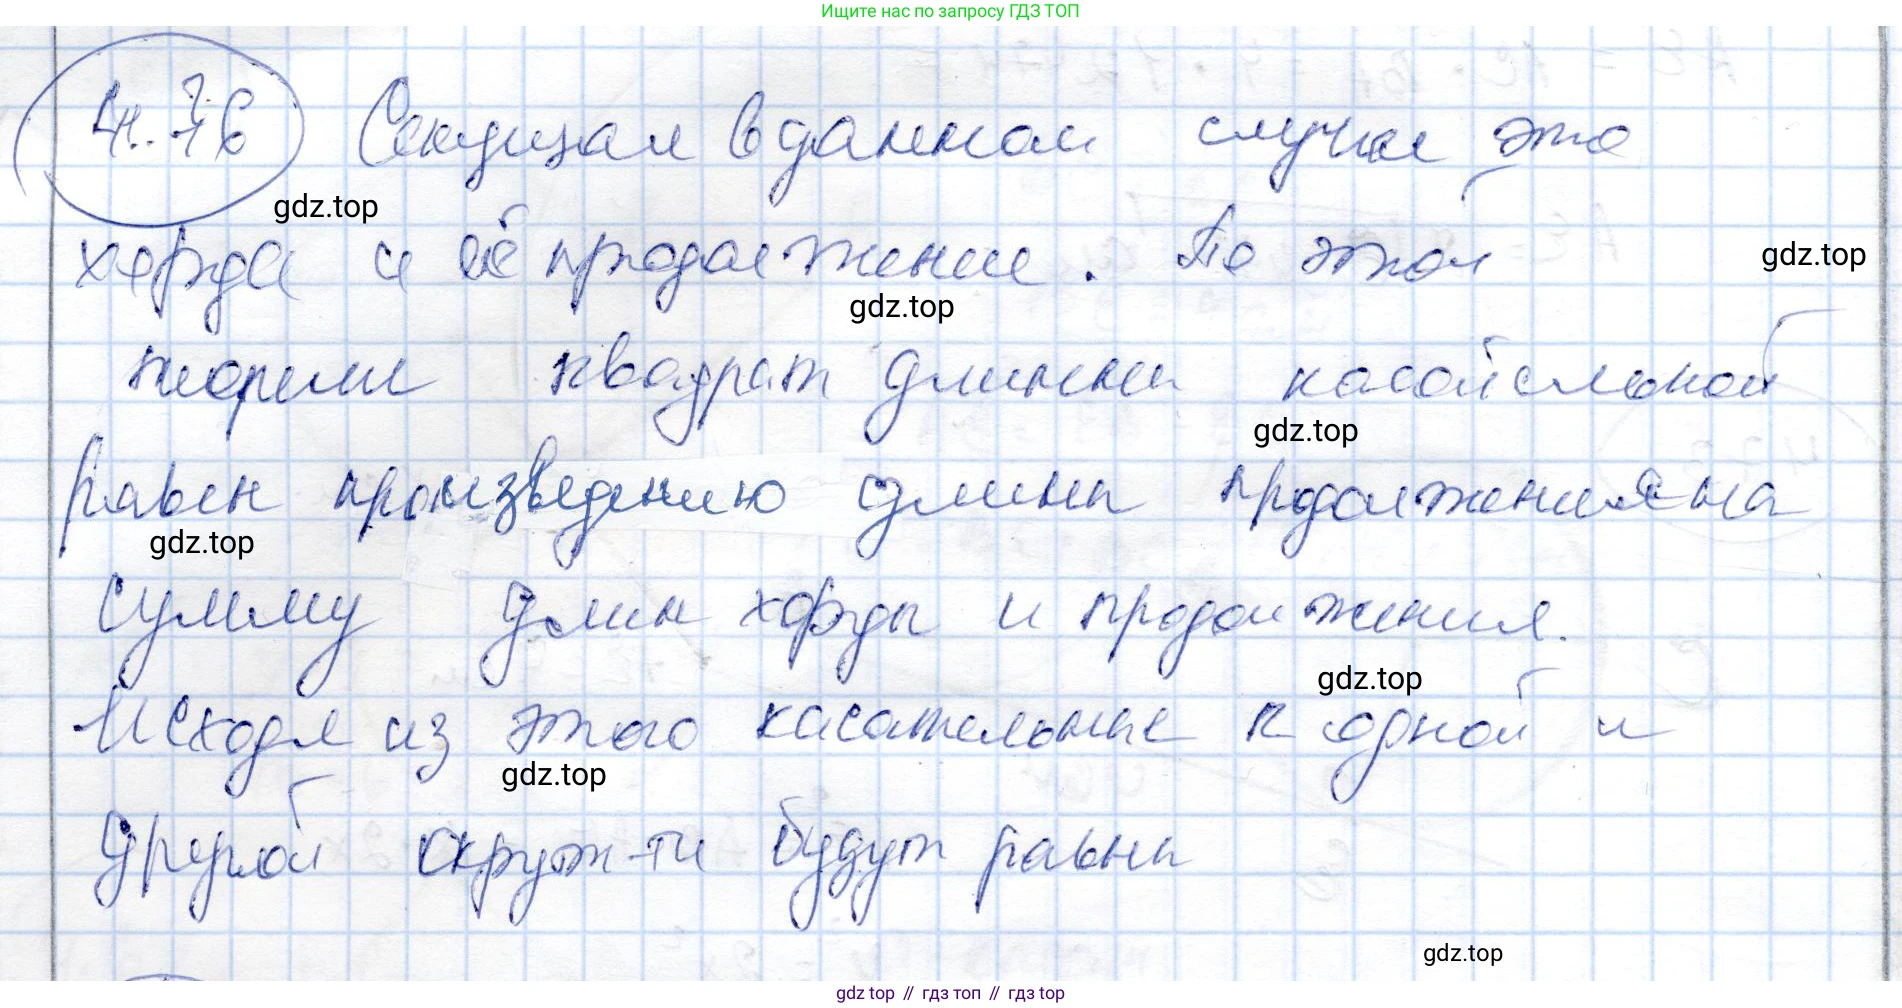 Ищите нас по запросу ГДЗ ТОП
4.76 Секущая в данном случае это
gdz.top
хорда и её продолжение. По этой
gdz.top
gdz.top
теореме квадрат длины касательной
gdz.top
равен произведению длины продолжения на
gdz.top
сумму длин хорды и продолжения.
gdz.top
Исходя из этого касательные к одной и
gdz.top
другой окруж-ти будут равны
gdz.top
gdz top // гдз топ // гдз top